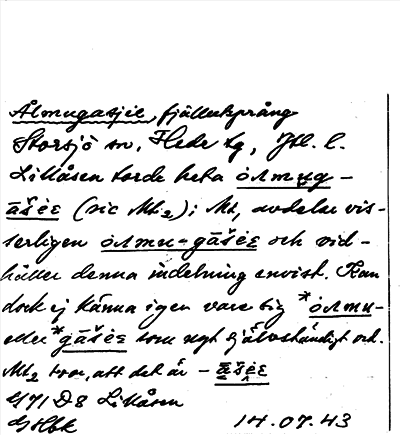 Ålmugasjie, fjällutsprång
Storsjö sn, Hede tg, Jtl. l.
Lillåsen torde heta ȯʌmug–
āšėɛ (sic Mt₂); Mt, avdelar vis-
serligen ȯʌmu-gāšėɛ och vid-
håller denna indelning envist. Kan
dock ej känna igen vare sig *ȯʌmu-
eller *gāšėɛ som ngt självständigt ord.
Mt₂ tror, att det är – āšėɛ
471 D8 Lillåsen
GHbk 14.07.43